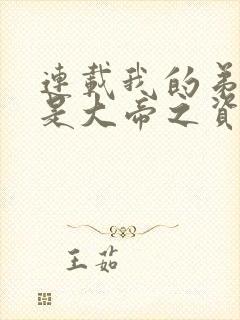 連載我的弟
是大帝之資
王茹